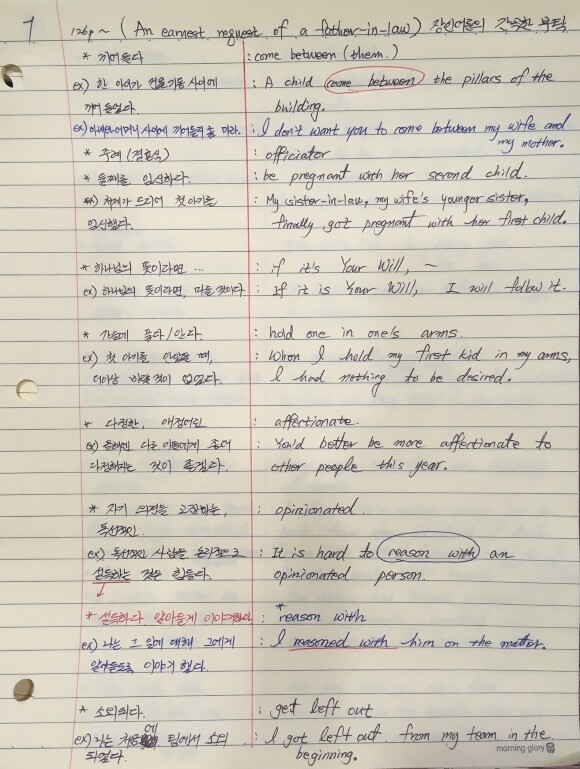 7 126p ~ (An earnest request of a father-in-law) 장인어른의 간곡한 부탁
* 끼어들다 : come between (them.)
ex) 한 아이가 건물 기둥 사이에 : A child come between the pillars of the
끼어 들었다. building.
ex) 아내와 어머니 사이에 끼어들지 좀 마라. : I don't want you to come between my wife and
my mother.
* 주례 (결혼식) : officiator
* 둘째를 임신하다. : be pregnant with her second child.
ex) 처제가 드디어 첫 아기를 : My sister-in-law, my wife's younger sister,
임신했다. finally got pregnant with her first child.
* 하나님의 뜻이라면 ... : if it's Your Will, ~
ex) 하나님의 뜻이라면, 따를 것이다 : If it is Your Will, I will follow it.
* 가슴에 품다 / 안다. : hold one in one's arms.
ex) 첫 아기를 안았을 때, : When I hold my first kid in my arms,
더이상 바랄 것이 없었다. I had nothing to be desired.
* 다정한, 애정어린 : affectionate.
ex) 올해엔 다른 이들에게 좀더 : You'd better be more affectionate to
다정해지는 것이 좋겠다. other people this year.
* 자기 의견을 고집하는, : opinionated.
독선적인.
ex) 독선적인 사람을 논리적으로 : It is hard to reason with an
설득하는 것은 힘들다. opinionated person.
* 설득하다 알아듣게 이야기하다 : * reason with
ex) 나는 그 일에 대해 그에게 : I reasoned with him on the matter.
알아듣도록 이야기 했다.
* 소외되다. : get left out
ex) 나는 처음에 팀에서 소외 : I got left out from my team in the
되었다. beginning.
morning glory